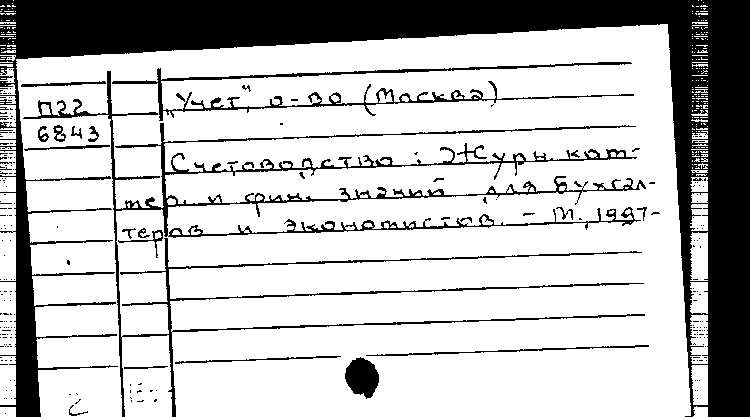 П22
6843
„Учет", о-во (Москва)
Счетоводство : Журн. ком-
мер. и фин. знаний для бухгал-
теров и экономистов. - М., 1997-
2